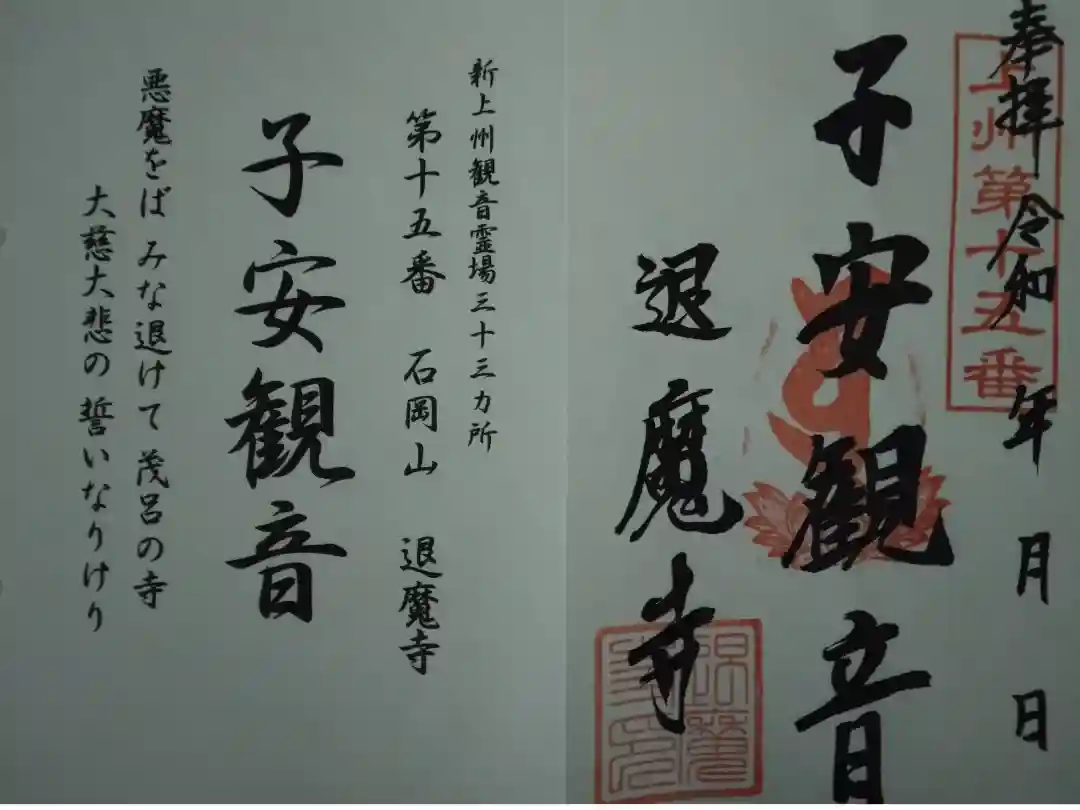 奉拝 令和 年 月 日
上州第十五番
子安観音
退魔寺
新上州観音霊場三十三カ所
第十五番 石岡山 退魔寺
子安観音
悪魔をば みな退けて 茂呂の寺
大慈大悲の誓いなりけり